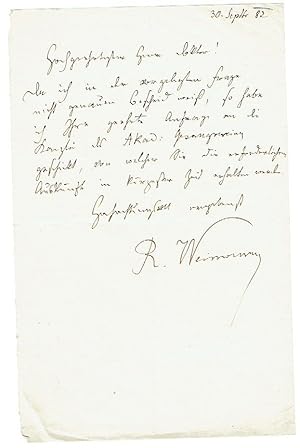 30. Septbr 82
Hochgeehrtester Herr Doktor!
Da ich in der vorgelegten Frage
nicht genauen Bescheid weiß, so habe
ich Ihre geehrte Anfrage an die
Kanzlei d. Akad.
geschickt, von welcher Sie die erforderliche
Auskunft in kürzester Zeit erhalten werden.
Hochachtungsvoll ergebenst
R. Weinwurm